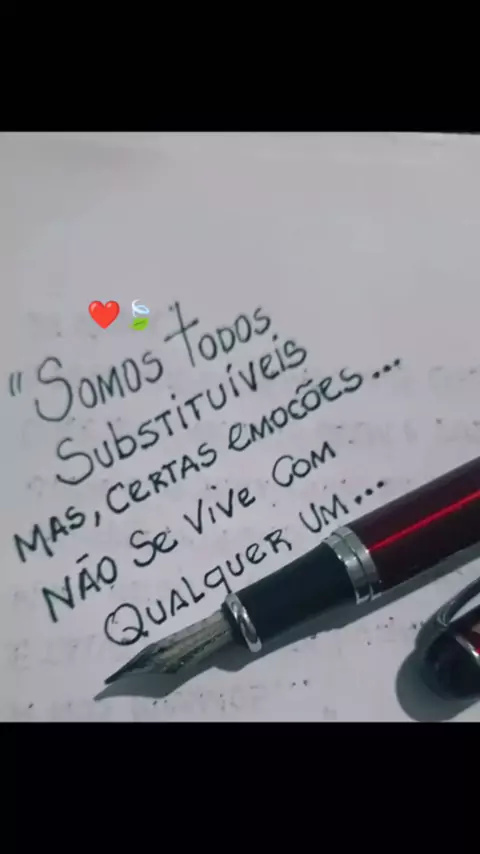 "Somos todos
Substituíveis
mas, certas emoções...
não se vive com
qualquer um...